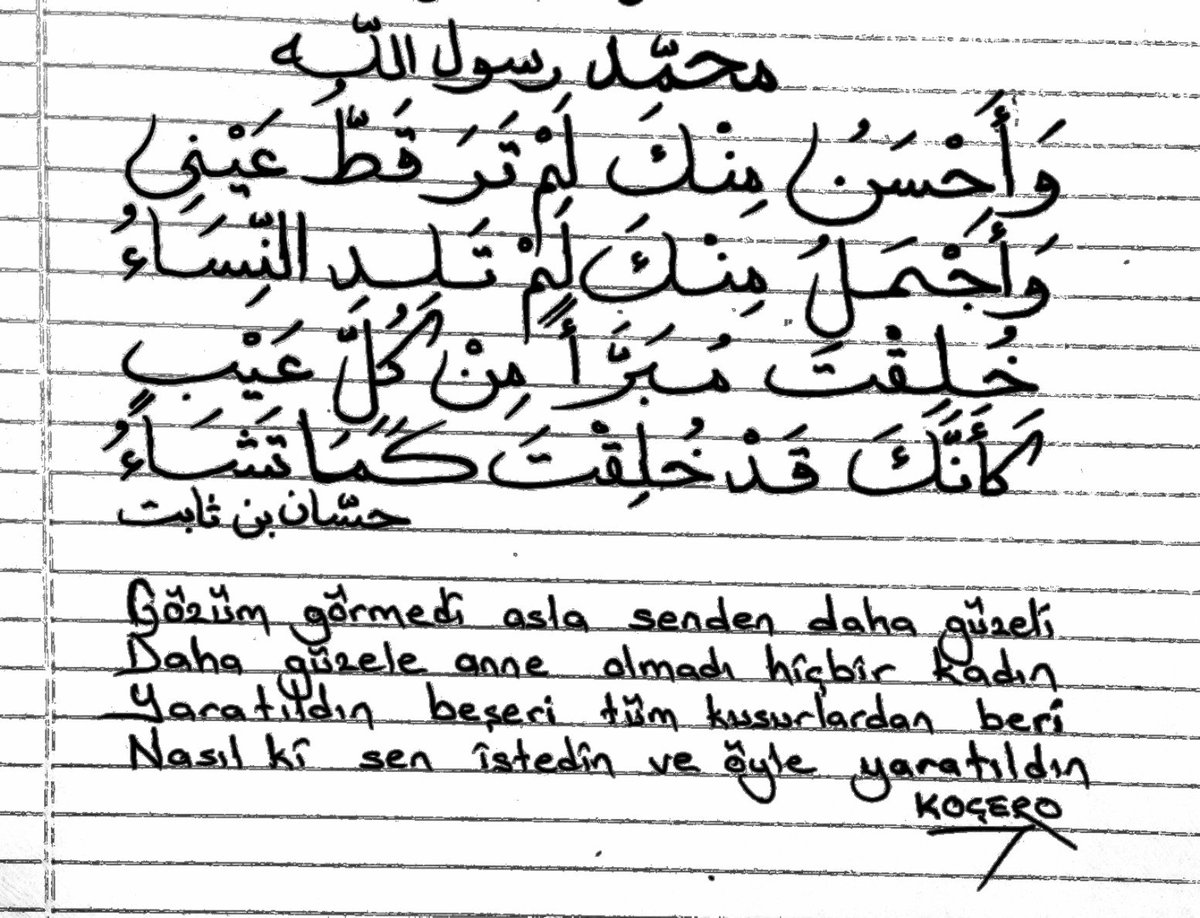 محمّد رسول اللّه
وَأَحْسَنُ مِنْكَ لَمْ تَرَ قَطُّ عَيْنِى
وَأَجْمَلُ مِنْكَ لَمْ تَلِدِ النِّسَاءُ
خُلِقْتَ مُبَرَّأً مِنْ كُلِّ عَيْبٍ
كَأَنَّكَ قَدْ خُلِقْتَ كَمَا تَشَاءُ
حسّان بن ثابت
Gözüm görmedi asla senden daha güzeli
Daha güzele anne olmadı hiçbir kadın
Yaratıldın beşeri tüm kusurlardan beri
Nasıl ki sen istedin ve öyle yaratıldın
KOÇERO